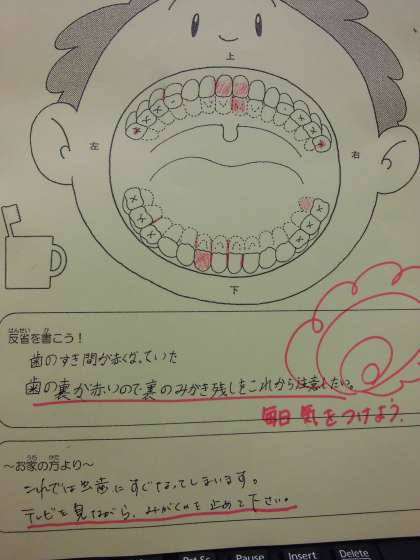 上
左
右
下
はんせい か
反省を書こう!
歯のすき間が赤くなっていた
歯の裏が赤いので裏のみがき残しをこれから注意したい。
毎日気をつけよう。
うち かた
〜お家の方より〜
これでは虫歯にすぐなってしまいます。
テレビを見ながら、みがくのを止めて下さい。
Prt Sc
Pause
Insert
Delete